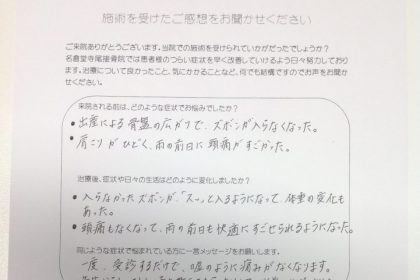 施術を受けたご感想をお聞かせください
ご来院ありがとうございます。当院での施術を受けられていかがだったでしょうか？
名倉堂寺尾接骨院では患者様のつらい症状を早く改善していけるよう日々努力しております。
治療について良かったこと、気にかかることなど、何でも結構ですのでお声をお聞かせください。
来院される前は、どのような症状でお悩みでしたか？
・出産による骨盤の広がりで、ズボンが入らなくなった。
・肩こりがひどく、雨の前日に頭痛がすごかった。
治療後、症状や日々の生活はどのように変化しましたか？
・入らなかったズボンが、「スーッ」と入るようになって、体重の変化も
あった。
・頭痛もなくなって、雨の前日も快適にすごせられるようになった。
同じような症状で悩まれている方に一言メッセージをお願いします。
一度、受診するだけで、嘘のように痛みがなくなります。